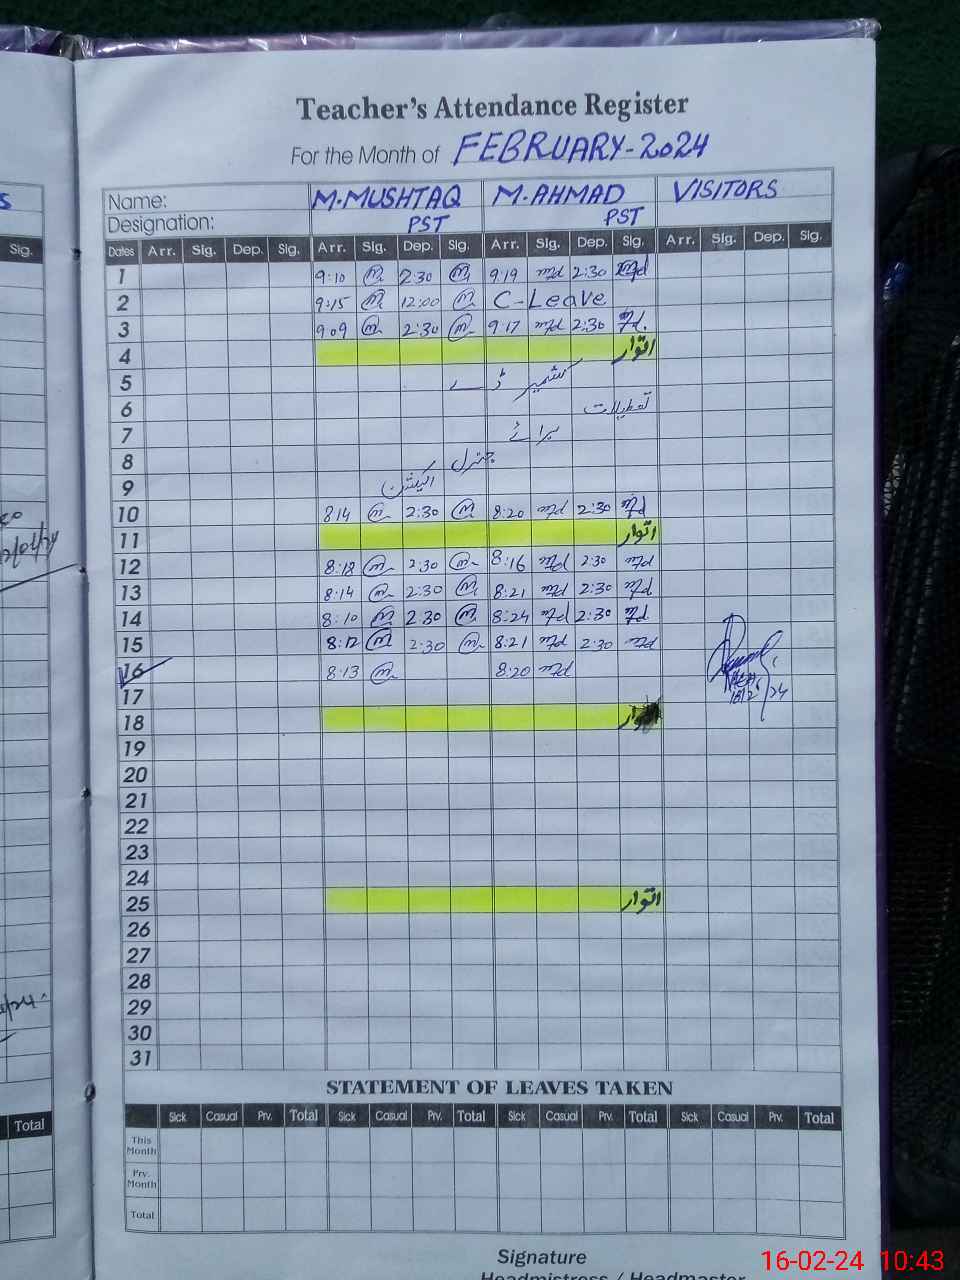 Teacher's Attendance Register
For the Month of FEBRUARY-2024
Name: M.MUSHTAQ M.AHMAD VISITORS
Designation: PST PST
Sig. Dates Arr. Sig. Dep. Sig. Arr. Sig. Dep. Sig. Arr. Sig. Dep. Sig. Arr. Sig. Dep. Sig.
1 9:10 2:30 9:19 2:30
2 9:15 12:00 C-Leave
3 9:09 2:30 9:17 2:30
4 اتوار
5 کشمیر ڈے
6 تعطیلات
7 برائے
8 جنرل
9 الیکشن
10 8:14 2:30 8:20 2:30
11 اتوار
12 8:18 2:30 8:16 2:30
13 8:14 2:30 8:21 2:30
14 8:10 2:30 8:24 2:30
15 8:12 2:30 8:21 2:30
16 8:13 8:20
17
18 اتوار
19
20
21
22
23
24
25 اتوار
26
27
28
29
30
31
STATEMENT OF LEAVES TAKEN
Total Sick Casual Prv. Total Sick Casual Prv. Total Sick Casual Prv. Total Sick Casual Prv. Total
This
Month
Prv.
Month
Total
Signature
Headmistress / Headmaster
16-02-24 10:43